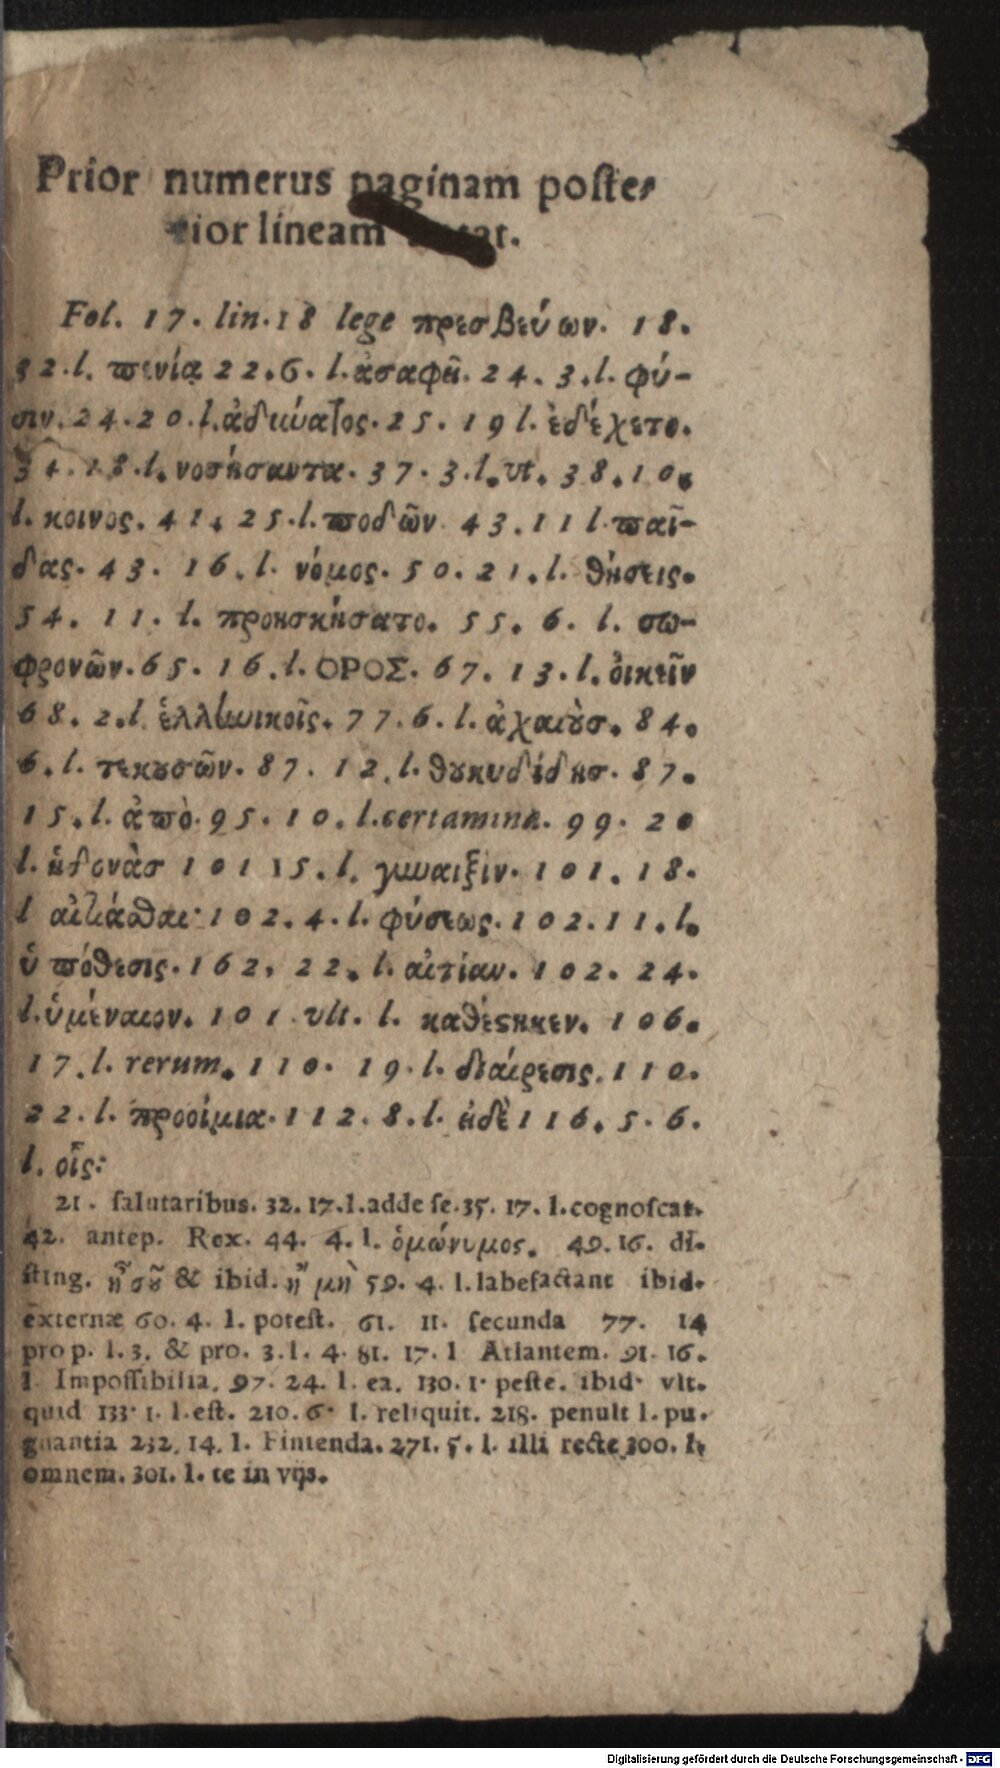 Prior numerus paginam poste-
rior lineam
Fol. 17. lin. 18 lege πρεσβεύων. 18.
32. l. πενία 22. 6. l. ἀσαφῆ. 24. 3. l. φύ-
σιν. 24. 20. l. ἀδιώατος. 25. 19 l. ἐδέχετο.
34. 18. l. νοσήσαντα. 37. 3. l. vt. 38. 10.
l. κοινος. 41. 25. l. ποδῶν 43. 11 l. παῖ-
δας. 43. 16. l. νόμος. 50. 21. l. θήσεις.
54. 11. l. προησκήσατο. 55. 6. l. σω-
φρονῶν. 65. 16. l. ΟΡΟΣ. 67. 13. l. ὀικεῖν
68. 2. l. ἑλλίωικοῖς. 77. 6. l. ἀχαιȣ̀σ. 84.
6. l. τεκȣσῶν. 87. 12. l. θȣκυδίδησ. 87.
15. l. ἀπὸ. 95. 10. l. certamina. 99. 20
l. ἡδονὰσ 101 15. l. γυναιξὶν. 101. 18.
l αἰτιᾶσθαι 102. 4. l. φύσεως. 102. 11. l.
ὑπόθεσις. 162. 22. l. αἰτίαν. 102. 24.
l. ὑμέναιον. 101 vlt. l. καθέϛηκεν. 106.
17. l. rerum. 110. 19. l. διαίρεσις. 110.
22. l. προοίμια. 112. 8. l. ἠδὲ 116. 5. 6.
l. οἷς:
21. salutaribus. 32. 17. l. adde se. 35. 17. l. cognoscat.
42. antep. Rex. 44. 4. l. ὁμώνυμος. 49. 16. di-
sting. ἦ σοῦ & ibid. ἢ μὴ 59. 4. l. labefactant ibid.
externæ 60. 4. l. potest. 61. 11. secunda 77. 14
pro p. l. 3. & pro. 3. l. 4. 81. 17. l Atlantem. 91. 16.
l. Impossibilia. 97. 24. l. ea. 130. 1. peste. ibid. vlt.
quid 133. 1. l. est. 210. 6. l. reliquit. 218. penult l. pu-
gnantia 232. 14. l. Fintenda. 271. 5. l. illi recte 300. l.
omnem. 301. l. te in vijs.
Digitalisierung gefördert durch die Deutsche Forschungsgemeinschaft - DFG